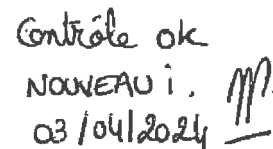 Contrôle ok
NOUVEAU i.
03/04/2024